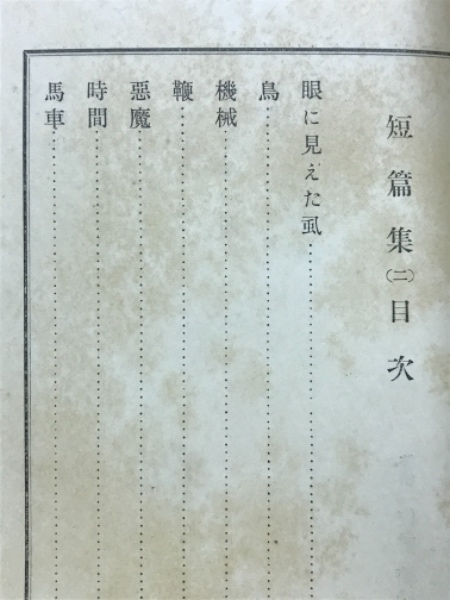 短篇集(二)目次
眼に見えた虱
鳥
機械
鞭
惡魔
時間
馬車